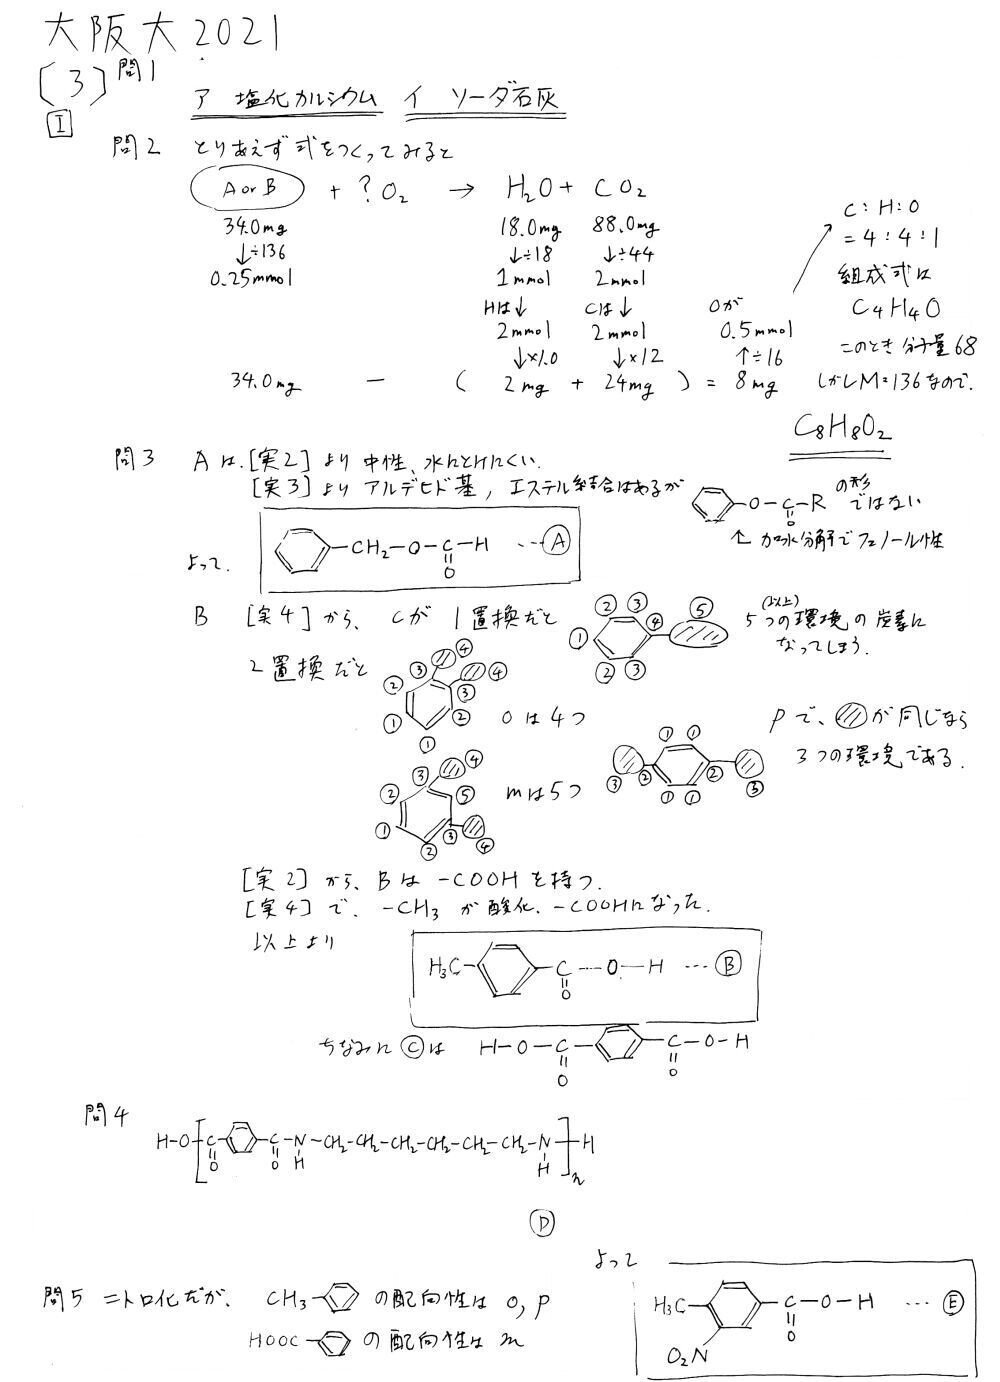 大阪大2021
[3] 問1
I
ア 塩化カルシウム イ ソーダ石灰
問2 とりあえず式をつくってみると
A or B + ? O2 → H2O + CO2
34.0mg 18.0mg 88.0mg
↓÷136 ↓÷18 ↓÷44
0.25mmol 1mmol 2mmol
Hは↓ Cは↓ Oが
2mmol 2mmol 0.5mmol
↓×1.0 ↓×12 ↑÷16
34.0mg - ( 2mg + 24mg ) = 8mg
C:H:O
=4:4:1
組成式は
C4H4O
このとき分子量68
しかしM=136なので、
C8H8O2
問3 Aは、[実2]より中性、水にとけにくい。
[実3]よりアルデヒド基,エステル結合はあるが
-O-C-R の形ではない
O
↑加水分解でフェノール性
よって、
-CH2-O-C-H …A
O
B [実4]から、Cが1置換だと
① ② ③ ④ ⑤ ② ③
5つの(以上)環境の炭素になってしまう。
2置換だと
① ② ③ ④ ④ ③ ② ①
oは4つ
② ③ ④ ⑤ ① ② ③ ④
mは5つ
① ① ② ② ③ ③ ① ①
pで、が同じなら
3つの環境である。
[実2]から、Bは-COOHを持つ。
[実4]で、-CH3が酸化、-COOHになった。
以上より
H3C- -C-O-H …B
O
ちなみにCは H-O-C- -C-O-H
O O
問4
H-O-[C- -C-N-CH2-CH2-CH2-CH2-CH2-CH2-N-]-H
O O H H n
D
問5 ニトロ化だが、 CH3- の配向性はo,p
HOOC- の配向性はm
よって
H3C- -C-O-H …E
O
O2N